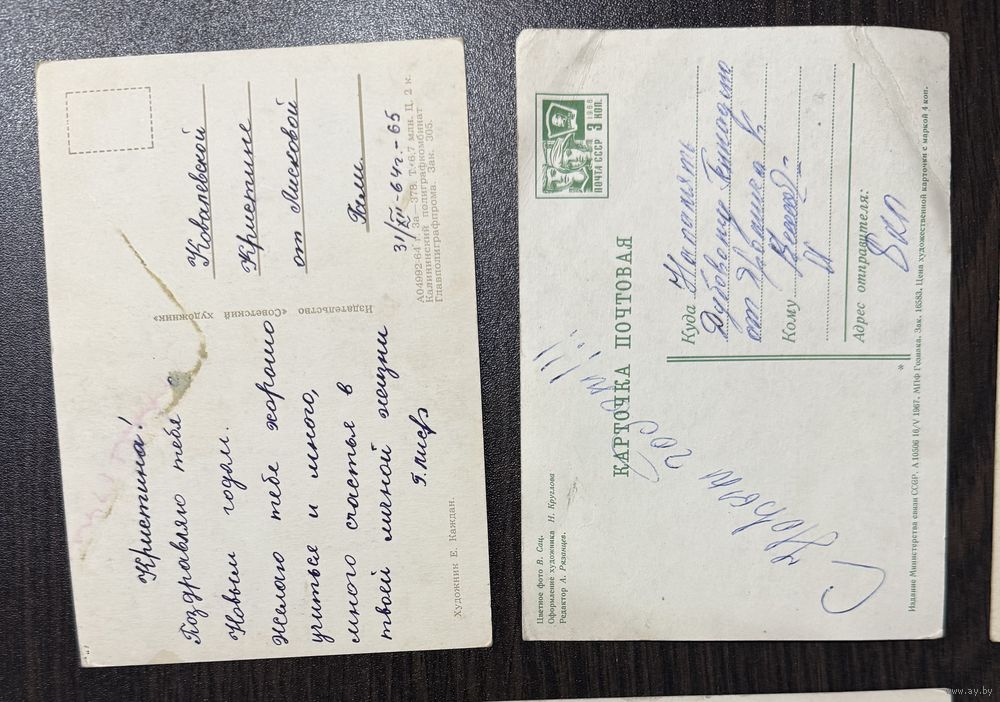 Кристина!
Поздравляю тебя с
Новым годом.
Желаю тебе хорошо
учиться и много,
много счастья в
твоей личной жизни
Художник Е. Каждан.
Издательство «Советский художник»
Ковалевской
Кристине
от Лисковой
Гали.
31/XII-64г.-65
А04992-64 г. За 378. Т. 6,7 млн. Ц. 2 к.
Калининский полиграфкомбинат
Главполиграфпрома. Зак. 305.
Цветное фото В. Сац.
Оформление художника Н. Круглова
Редактор А. Рязанцев.
КАРТОЧКА ПОЧТОВАЯ
С Новым годом!!!
ПОЧТА СССР 3 КОП.
1966
Куда На память
Дубовému Геннадию
от
Кому
Адрес отправителя:
*
Издание Министерства связи СССР. А 10506 16/V 1967. МПФ Гознака. Зак. 16583. Цена художественной карточки с маркой 4 коп.
www.ay.by